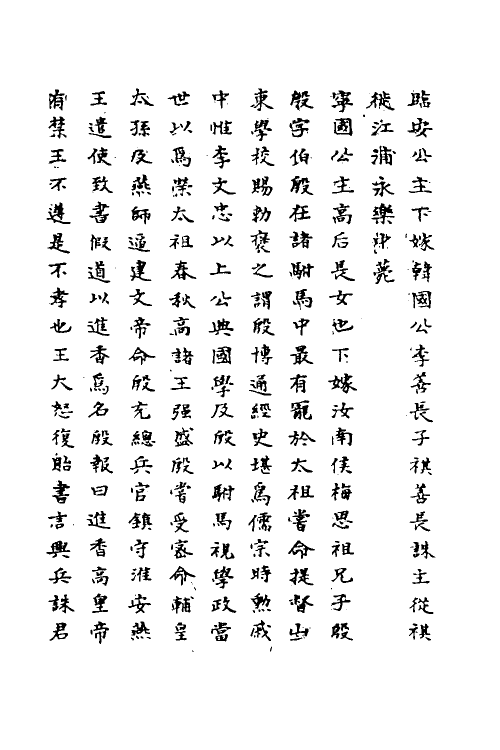 臨安公主下嫁韓國公李善長子祺善長誅主從祺
徙江浦永樂中薨
寧國公主高后長女也下嫁汝南侯梅思祖兄子殷
殷字伯殷在諸駙馬中最有寵於太祖嘗命提督山
東學校賜勅褒之謂殷博通經史堪爲儒宗時勲戚
中惟李文忠以上公典國學及殷以駙馬視學政當
世以爲榮太祖春秋高諸王强盛殷嘗受密命輔皇
太孫及燕師逼建文帝命殷充總兵官鎮守淮安燕
王遣使致書假道以進香爲名殷報曰進香高皇帝
有禁王不遵是不孝也王大怒復貽書言興兵誅君